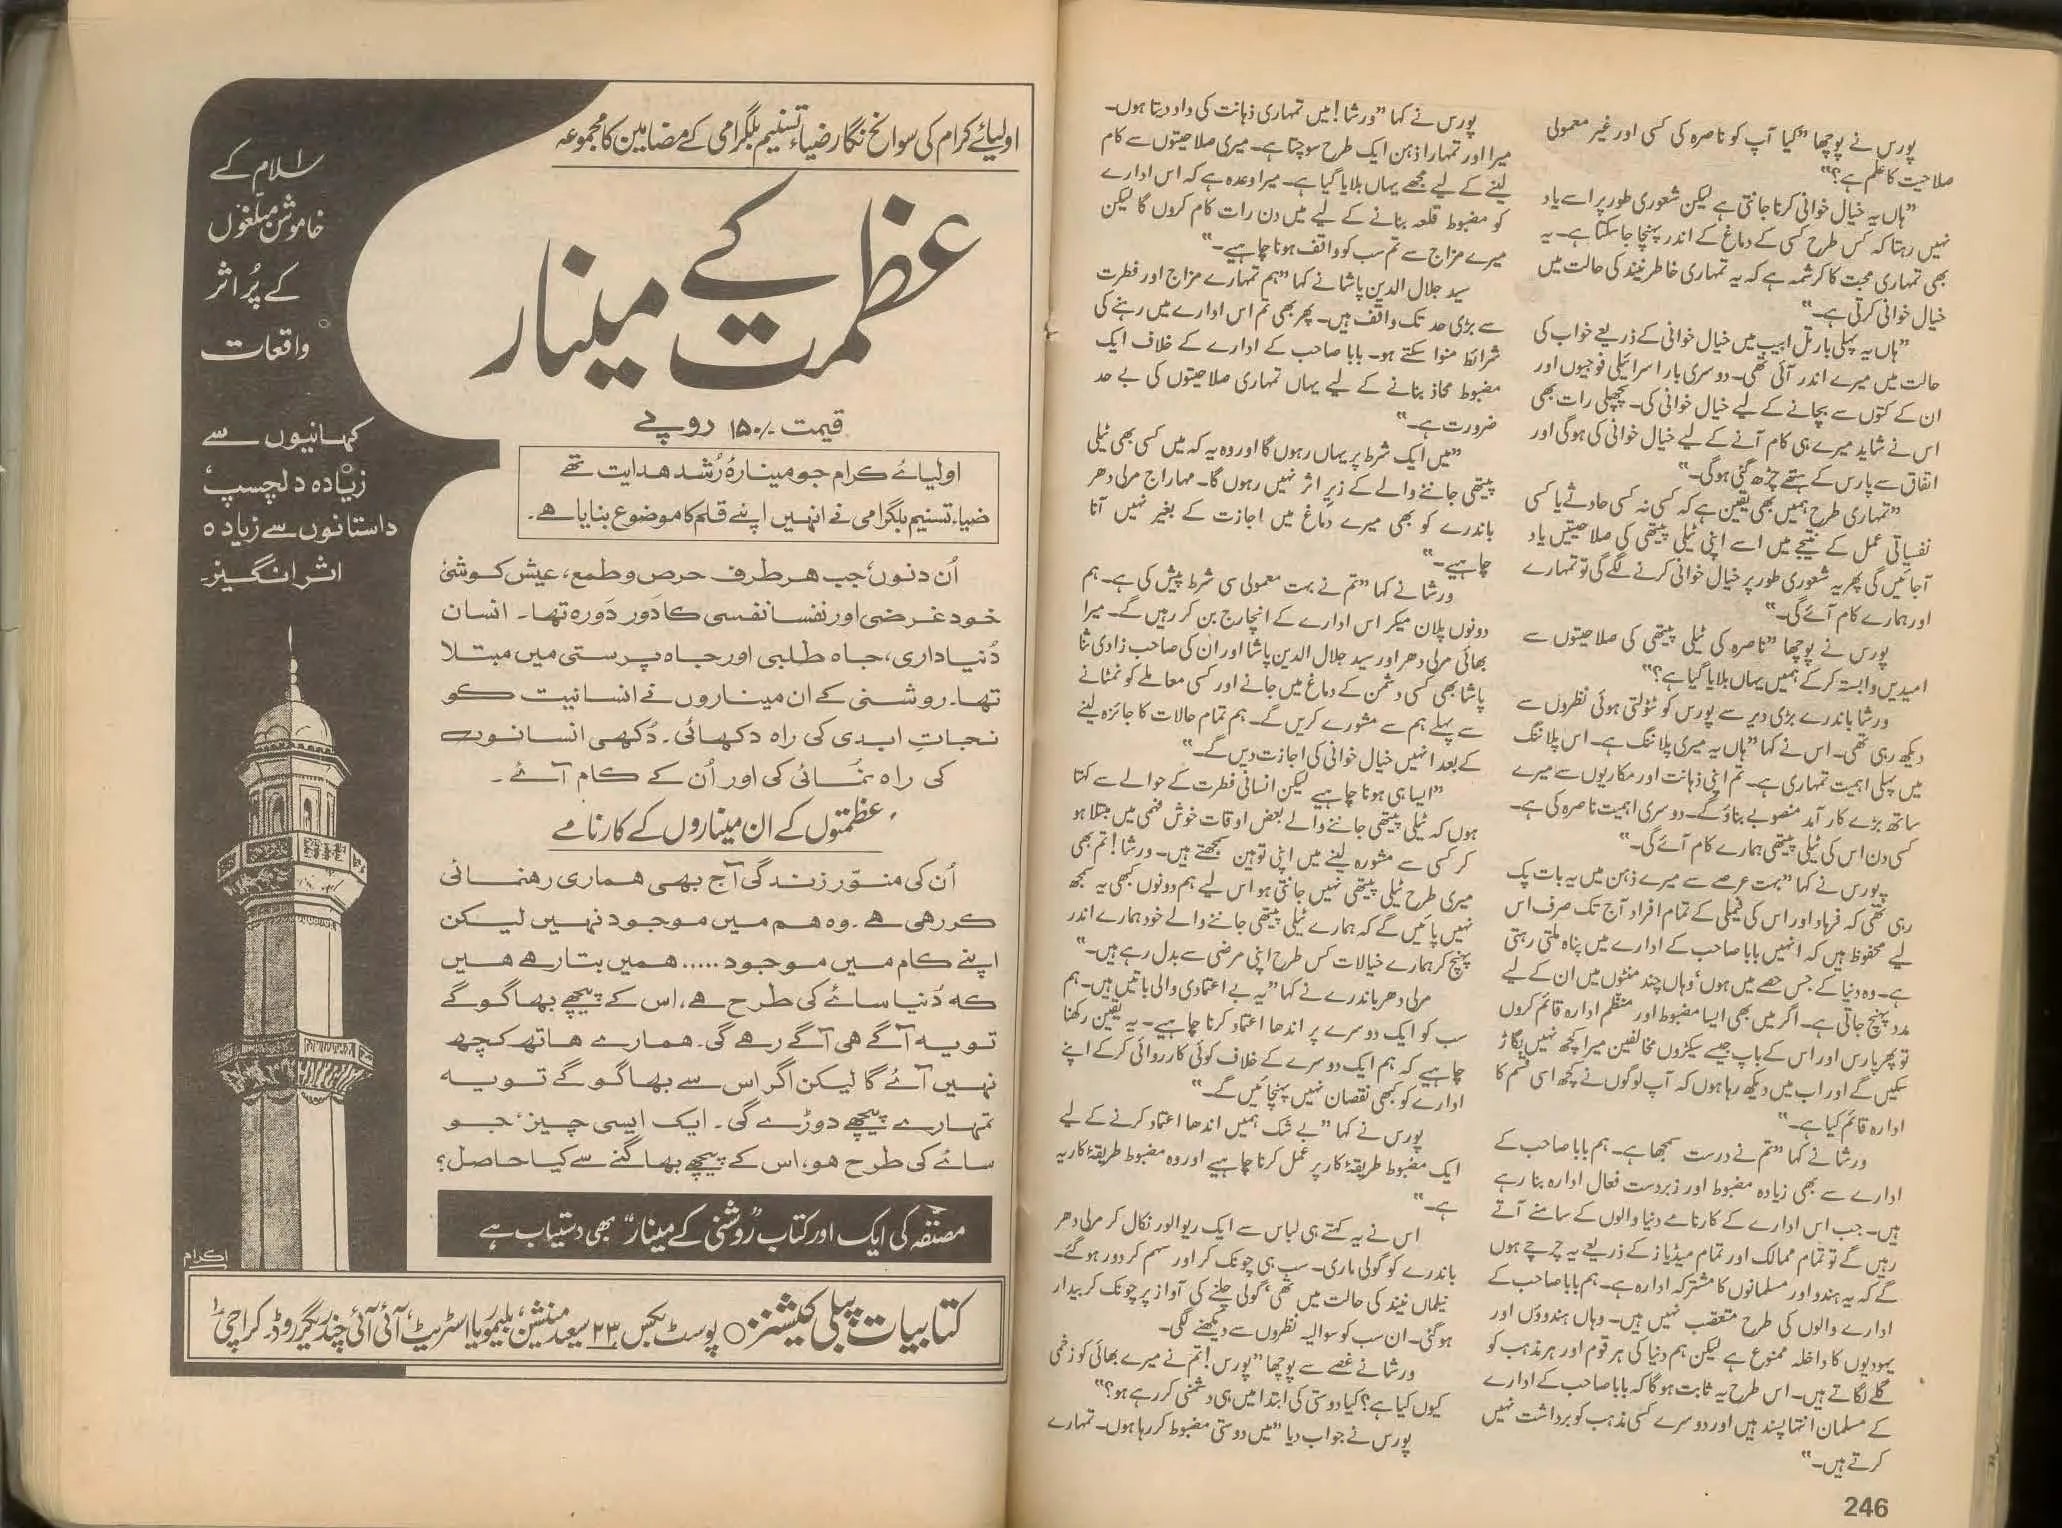 پورس نے پوچھا "کیا آپ کو ناصرہ کی کسی اور غیر معمولی
صلاحیت کا علم ہے؟"
"ہاں یہ خیال خوانی کرنا جانتی ہے لیکن شعوری طور پر اسے یاد
نہیں رہتا کہ کس طرح کسی کے دماغ کے اندر پہنچا جا سکتا ہے۔ یہ
بھی تمہاری محبت کا کرشمہ ہے کہ یہ تمہاری خاطر نیند کی حالت میں
خیال خوانی کرتی ہے۔"
"ہاں یہ پہلی بار تل ابیب میں خیال خوانی کے ذریعے خواب کی
حالت میں میرے اندر آئی تھی۔ دوسری بار اسرائیلی فوجیوں اور
ان کے کتوں سے بچانے کے لیے خیال خوانی کی۔ پچھلی رات بھی
اس نے شاید میرے ہی کام آنے کے لیے خیال خوانی کی ہوگی اور
اتفاق سے پارس کے ہتھے چڑھ گئی ہوگی۔"
"تمہاری طرح ہمیں بھی یقین ہے کہ کسی نہ کسی حادثے یا کسی
نفسیاتی عمل کے نتیجے میں اسے اپنی ٹیلی پیتھی کی صلاحیتیں یاد
آجائیں گی پھر یہ شعوری طور پر خیال خوانی کرنے لگے گی تو تمہارے
اور ہمارے کام آئے گی۔"
پورس نے پوچھا "ناصرہ کی ٹیلی پیتھی کی صلاحیتوں سے
امیدیں وابستہ کرکے ہمیں یہاں بلایا گیا ہے؟"
ورشا باندرے بڑی دیر سے پورس کو ٹٹولتی ہوئی نظروں سے
دیکھ رہی تھی۔ اس نے کہا "ہاں یہ میری پلاننگ ہے۔ اس پلاننگ
میں پہلی اہمیت تمہاری ہے۔ تم اپنی ذہانت اور مکاریوں سے میرے
ساتھ بڑے کار آمد منصوبے بناؤ گے۔ دوسری اہمیت ناصرہ کی ہے۔
کسی دن اس کی ٹیلی پیتھی ہمارے کام آئے گی۔"
پورس نے کہا "بہت عرصے سے میرے ذہن میں یہ بات پک
رہی تھی کہ فرہاد اور اس کی فیملی کے تمام افراد آج تک صرف اس
لیے محفوظ ہیں کہ انہیں بابا صاحب کے ادارے میں پناہ ملتی رہتی
ہے۔ وہ دنیا کے جس حصے میں ہوں، وہاں چند منٹوں میں ان کے لیے
مدد پہنچ جاتی ہے۔ اگر میں بھی ایسا مضبوط اور منظم ادارہ قائم کروں
تو پھر پارس اور اس کے باپ جیسے سیکڑوں مخالفین میرا کچھ نہیں بگاڑ
سکیں گے اور اب میں دیکھ رہا ہوں کہ آپ لوگوں نے کچھ اسی قسم کا
ادارہ قائم کیا ہے۔"
ورشا نے کہا "تم نے درست سمجھا ہے۔ ہم بابا صاحب کے
ادارے سے بھی زیادہ مضبوط اور زبردست فعال ادارہ بنا رہے
ہیں۔ جب اس ادارے کے کارنامے دنیا والوں کے سامنے آتے
رہیں گے تو تمام ممالک اور تمام میڈیاز کے ذریعے یہ چرچے ہوں
گے کہ یہ ہندو اور مسلمانوں کا مشترکہ ادارہ ہے۔ ہم بابا صاحب کے
ادارے والوں کی طرح متعصب نہیں ہیں۔ وہاں ہندوؤں اور
یہودیوں کا داخلہ ممنوع ہے لیکن ہم دنیا کی ہر قوم اور ہر مذہب کو
گلے لگاتے ہیں۔ اس طرح یہ ثابت ہوگا کہ بابا صاحب کے ادارے
کے مسلمان انتہا پسند ہیں اور دوسرے کسی مذہب کو برداشت نہیں
کرتے ہیں۔"
246
پورس نے کہا "ورشا! میں تمہاری ذہانت کی داد دیتا ہوں۔
میرا اور تمہارا ذہن ایک طرح سوچتا ہے۔ میری صلاحیتوں سے کام
لینے کے لیے مجھے یہاں بلایا گیا ہے۔ میرا وعدہ ہے کہ اس ادارے
کو مضبوط قلعہ بنانے کے لیے میں دن رات کام کروں گا لیکن
میرے مزاج سے تم سب کو واقف ہونا چاہیے۔"
سید جلال الدین پاشا نے کہا "ہم تمہارے مزاج اور فطرت
سے بڑی حد تک واقف ہیں۔ پھر بھی تم اس ادارے میں رہنے کی
شرائط منوا سکتے ہو۔ بابا صاحب کے ادارے کے خلاف ایک
مضبوط محاذ بنانے کے لیے یہاں تمہاری صلاحیتوں کی بے حد
ضرورت ہے۔"
"میں ایک شرط پر یہاں رہوں گا اور وہ یہ کہ میں کسی بھی ٹیلی
پیتھی جاننے والے کے زیر اثر نہیں رہوں گا۔ مہاراج مرلی دھر
باندرے کو بھی میرے دماغ میں اجازت کے بغیر نہیں آنا
چاہیے۔"
ورشا نے کہا "تم نے بہت معمولی سی شرط پیش کی ہے۔ ہم
دونوں پلان میکر اس ادارے کے انچارج بن کر رہیں گے۔ میرا
بھائی مرلی دھر اور سید جلال الدین پاشا اور ان کی صاحب زادی ثنا
پاشا بھی کسی دشمن کے دماغ میں جانے اور کسی معاملے کو نمٹانے
سے پہلے ہم سے مشورے کریں گے۔ ہم تمام حالات کا جائزہ لینے
کے بعد انہیں خیال خوانی کی اجازت دیں گے۔"
"ایسا ہی ہونا چاہیے لیکن انسانی فطرت کے حوالے سے کہتا
ہوں کہ ٹیلی پیتھی جاننے والے بعض اوقات خوش فہمی میں مبتلا ہو
کر کسی سے مشورہ لینے میں اپنی توہین سمجھتے ہیں۔ ورشا! تم بھی
میری طرح ٹیلی پیتھی نہیں جانتی ہو اس لیے ہم دونوں کبھی یہ سمجھ
نہیں پائیں گے کہ ہمارے ٹیلی پیتھی جاننے والے خود ہمارے اندر
پہنچ کر ہمارے خیالات کس طرح اپنی مرضی سے بدل رہے ہیں۔"
مرلی دھر باندرے نے کہا "یہ بے اعتمادی والی باتیں ہیں۔ ہم
سب کو ایک دوسرے پر اندھا اعتماد کرنا چاہیے۔ یہ یقین رکھنا
چاہیے کہ ہم ایک دوسرے کے خلاف کوئی کارروائی کرکے اپنے
ادارے کو کبھی نقصان نہیں پہنچائیں گے۔"
پورس نے کہا "بے شک ہمیں اندھا اعتماد کرنے کے لیے
ایک مضبوط طریقۂ کار پر عمل کرنا چاہیے اور وہ مضبوط طریقۂ کار یہ
ہے۔"
اس نے یہ کہتے ہی لباس سے ایک ریوالور نکال کر مرلی دھر
باندرے کو گولی ماری۔ سب ہی چونک کر اور سہم کر دور ہوگئے۔
نیلماں نیند کی حالت میں تھی، گولی چلنے کی آواز پر چونک کر بیدار
ہو گئی۔ ان سب کو سوالیہ نظروں سے دیکھنے لگی۔
ورشا نے غصے سے پوچھا "پورس! تم نے میرے بھائی کو زخمی
کیوں کیا ہے؟ کیا دوستی کی ابتدا میں ہی دشمنی کر رہے ہو؟"
پورس نے جواب دیا "میں دوستی مضبوط کر رہا ہوں۔ تمہارے
اولیائے کرام کی سوانح نگار ضیاء تسنیم بلگرامی کے مضامین کا مجموعہ
عظمت کے مینار
قیمت -/۱۵۰ روپے
اولیائے کرام جو مینارۂ رُشد ہدایت تھے
ضیاء تسنیم بلگرامی نے انہیں اپنے قلم کا موضوع بنایا ہے۔
اُن دنوں، جب ہر طرف حرص و طمع، عیش کوشی،
خود غرضی اور نفسا نفسی کا دَور دَورہ تھا۔ انسان
دُنیاداری، جاہ طلبی اور جاہ پرستی میں مبتلا
تھا۔ روشنی کے ان میناروں نے انسانیت کو
نجاتِ ابدی کی راہ دکھائی۔ دُکھی انسانوں
کی راہ نمائی کی اور اُن کے کام آئے۔
عظمتوں کے ان میناروں کے کارنامے
اُن کی منوّر زندگی آج بھی ہماری رهنمائی
کر رہی ہے۔ وہ ہم میں موجود نہیں لیکن
اپنے کام میں موجود ..... ہمیں بتا رہے ہیں
کہ دُنیا سائے کی طرح ہے، اس کے پیچھے بھاگو گے
تو یہ آگے ہی آگے رہے گی۔ ہمارے ہاتھ کچھ
نہیں آئے گا لیکن اگر اس سے بھاگو گے تو یہ
تمہارے پیچھے دوڑے گی۔ ایک ایسی چیز، جو
سائے کی طرح ہو، اس کے پیچھے بھاگنے سے کیا حاصل؟
مصنفہ کی ایک اور کتاب "روشنی کے مینار" بھی دستیاب ہے
اسلام کے
خاموش مبلغوں
کے پُر اثر
واقعات
کہانیوں سے
زیادہ دلچسپ،
داستانوں سے زیادہ
اثر انگیز۔
اکرام
کتابیات پبلی کیشنز ○ پوسٹ بکس ۲۳ سعید منشن، بلیموریا اسٹریٹ، آئی آئی چندریگر روڈ۔ کراچی ۱